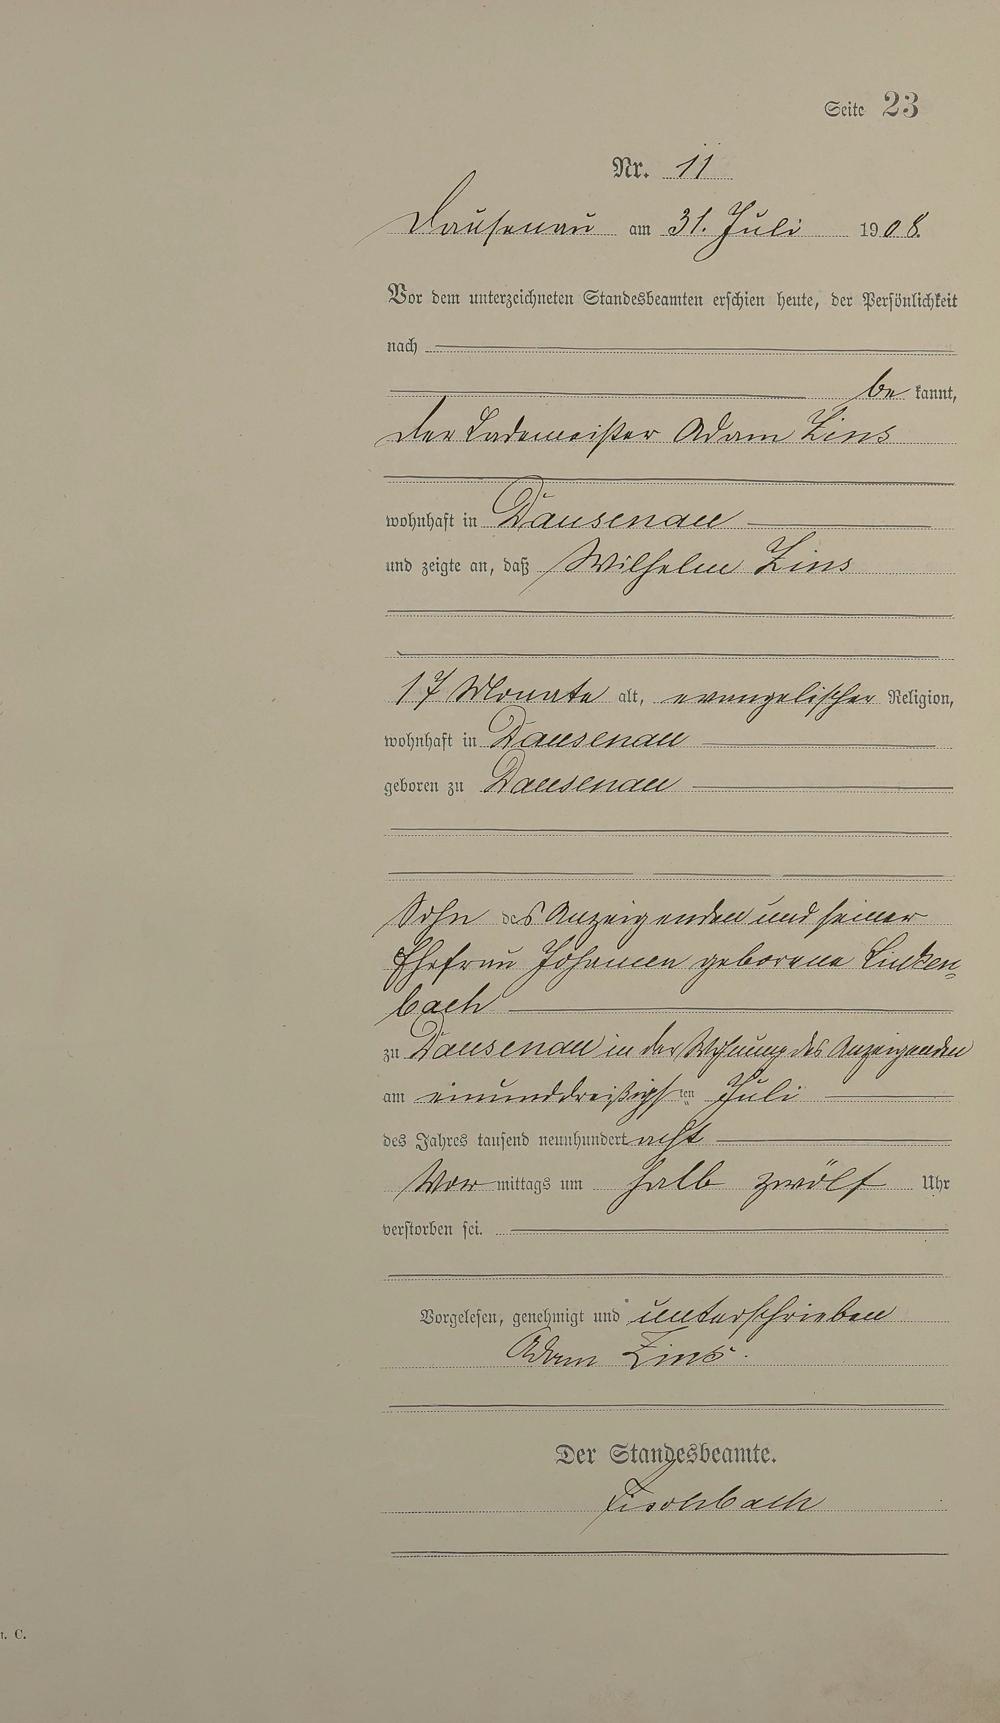 Seite 23
Nr. 11
Dausenau am 31. Juli 1908.
Vor dem unterzeichneten Standesbeamten erschien heute, der Persönlichkeit
nach
be kannt,
der Lademeister Adam Zins
wohnhaft in Dausenau
und zeigte an, daß Wilhelm Zins
17 Monate alt, evangelischer Religion,
wohnhaft in Dausenau
geboren zu Dausenau
Sohn des Anzeigenden und seiner
Ehefrau Johanna geborene Linken-
bach
zu Dausenau in der Wohnung des Anzeigenden
am einunddreißigsten Juli
des Jahres tausend neunhundert acht
Vor mittags um halb zwölf Uhr
verstorben sei.
Vorgelesen, genehmigt und unterschrieben
Adam Zins.
Der Standesbeamte.
Fischbach
r. C.